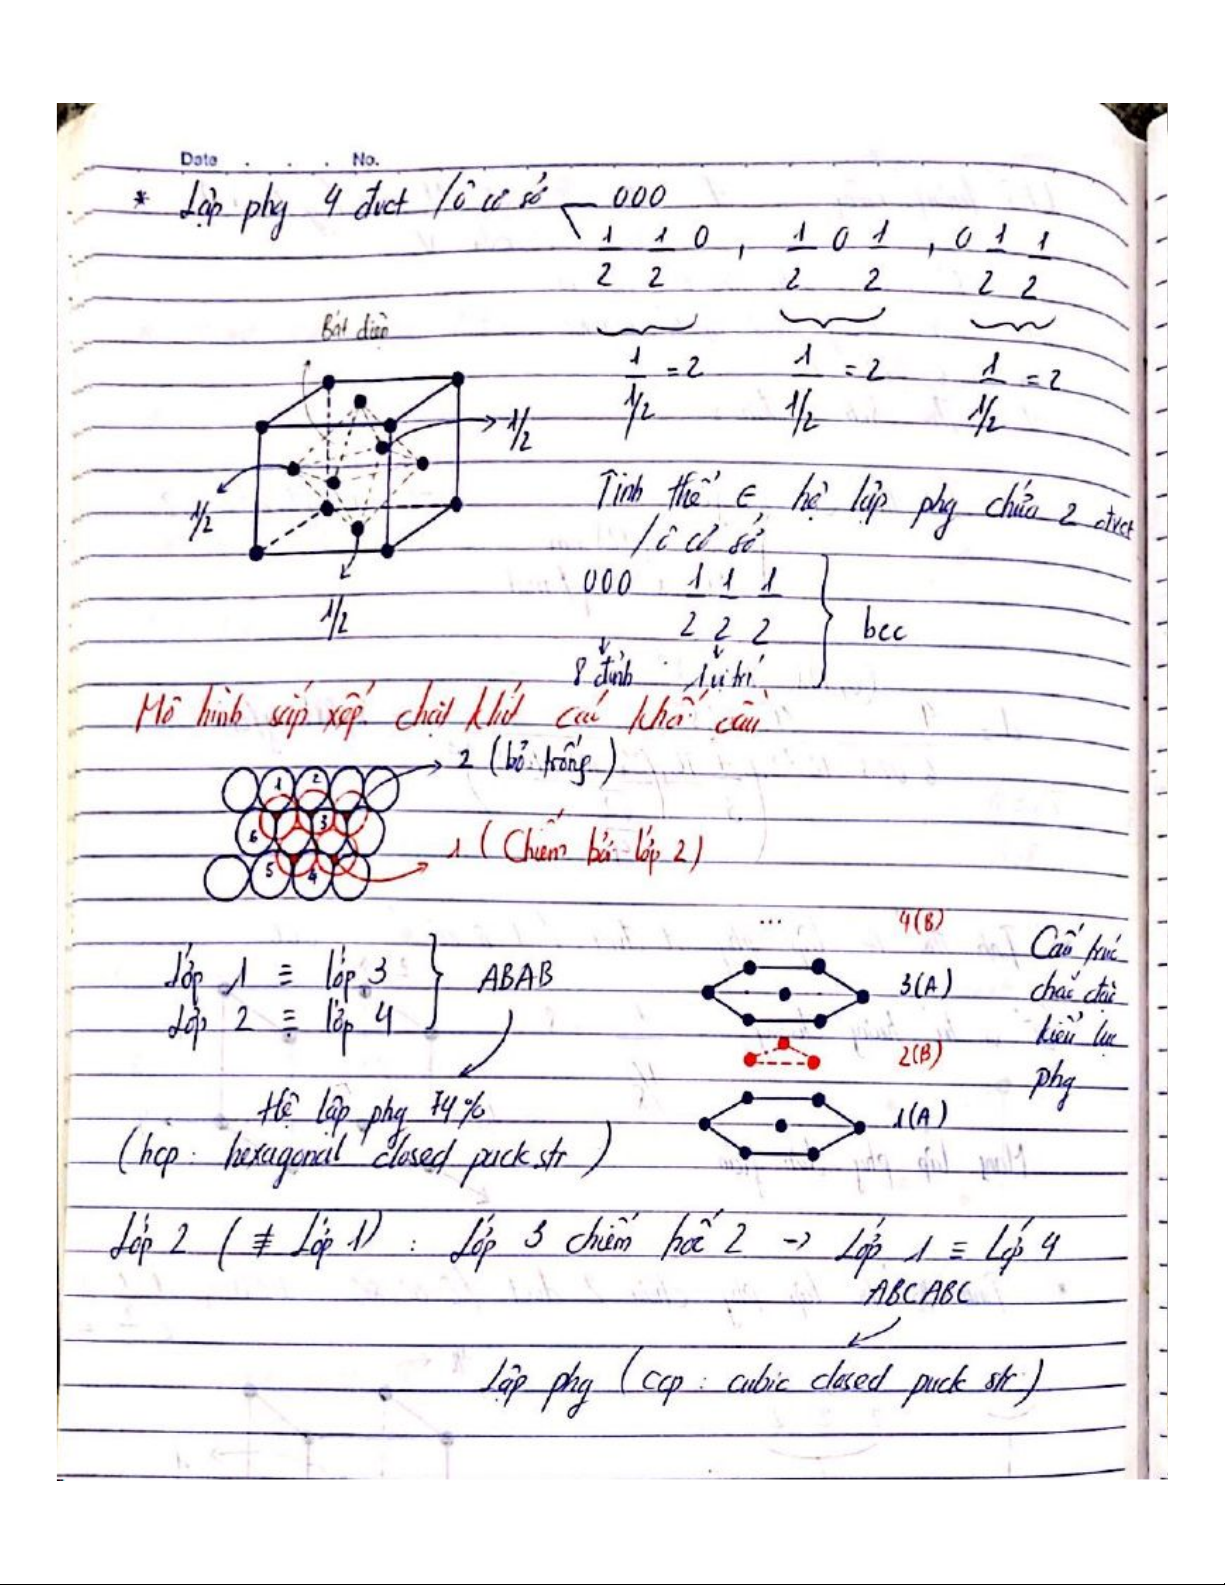 Date . . . No.
* Lập phg 4 đvct / ô cơ sở 000
1/2 1/2 0 , 1/2 0 1/2 , 0 1/2 1/2
Bát diện
1/1/2 = 2 1/1/2 = 2 1/1/2 = 2
1/2
1/2
1/2
Tinh thể ∈ hệ lập phg chứa 2 đvct
/ ô cơ sở
000 1/2 1/2 1/2
bcc
8 đỉnh 1 vị trí
Mô hình sắp xếp chặt khít các khối cầu
2 (bỏ trống)
1 2
6 3
5 4
1 (Chiếm bởi lớp 2)
... 4(B)
Lớp 1 ≡ lớp 3
Lớp 2 ≡ lớp 4
ABAB
3(A)
2(B)
1(A)
Cấu trúc
chắc đặc
kiểu lục
phg
Hệ lập phg 74%
(hcp : hexagonal closed pack str)
Lớp 2 (≢ Lớp 1) : Lớp 3 chiếm hốc 2 -> Lớp 1 ≡ Lớp 4
ABCABC
Lập phg (ccp : cubic closed pack str)